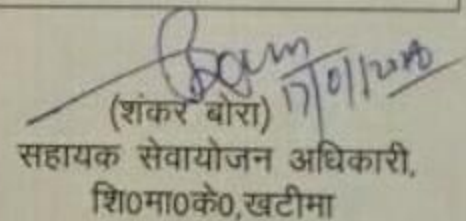 17/01/2018
(शंकर बोरा)
सहायक सेवायोजन अधिकारी,
शि0मा0के0,खटीमा